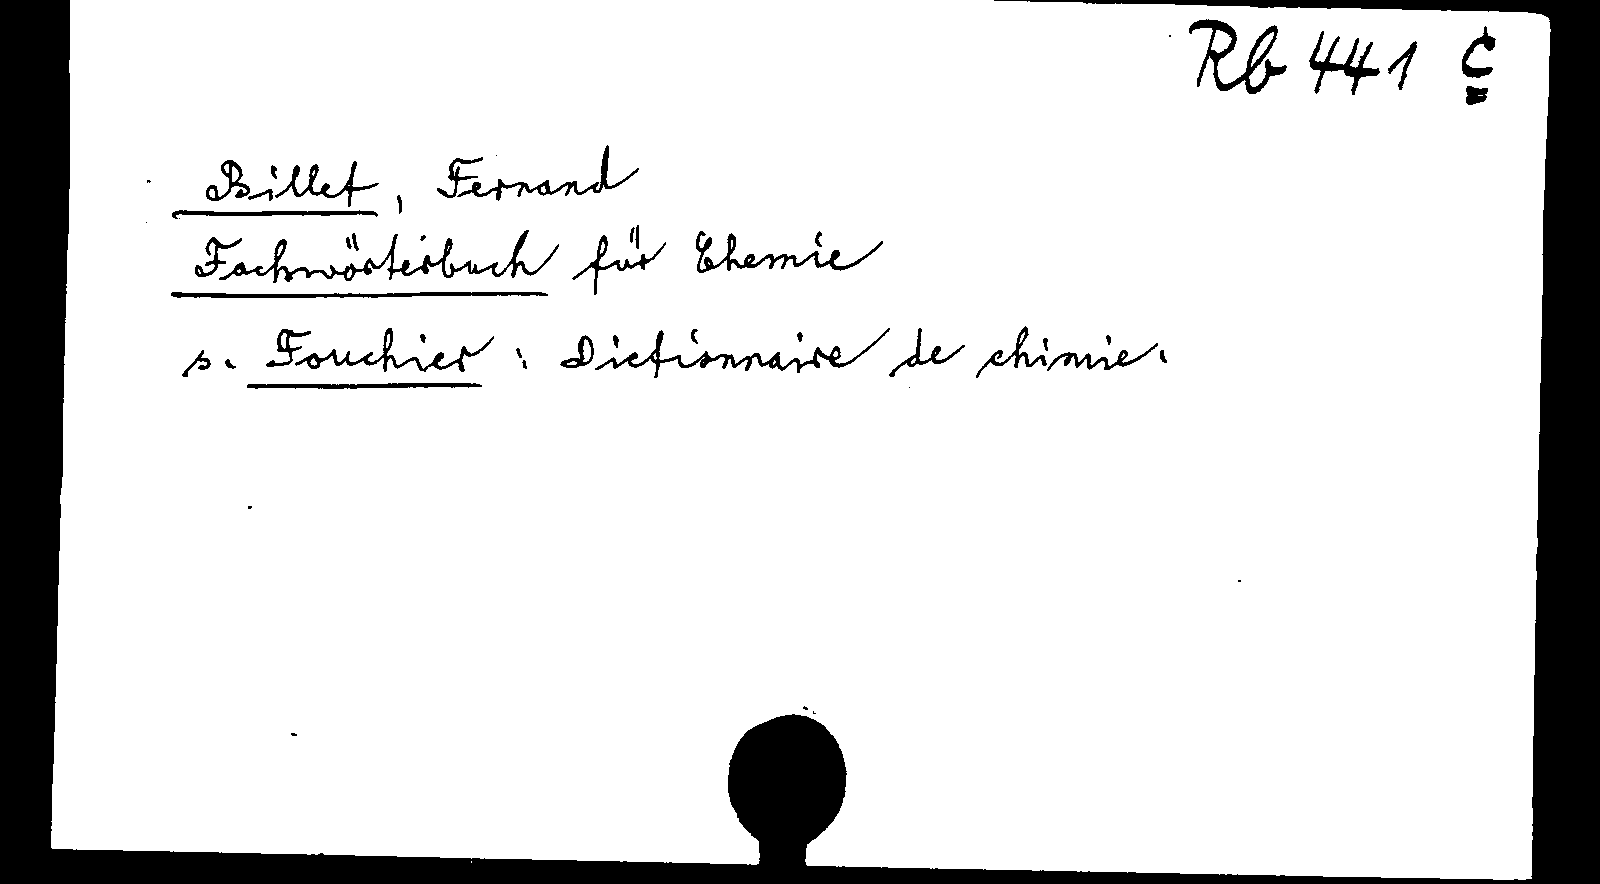 Rb 441 c
Billet, Fernand
Fachwörterbuch für Chemie
s. Fouchier: Dictionnaire de chimie.